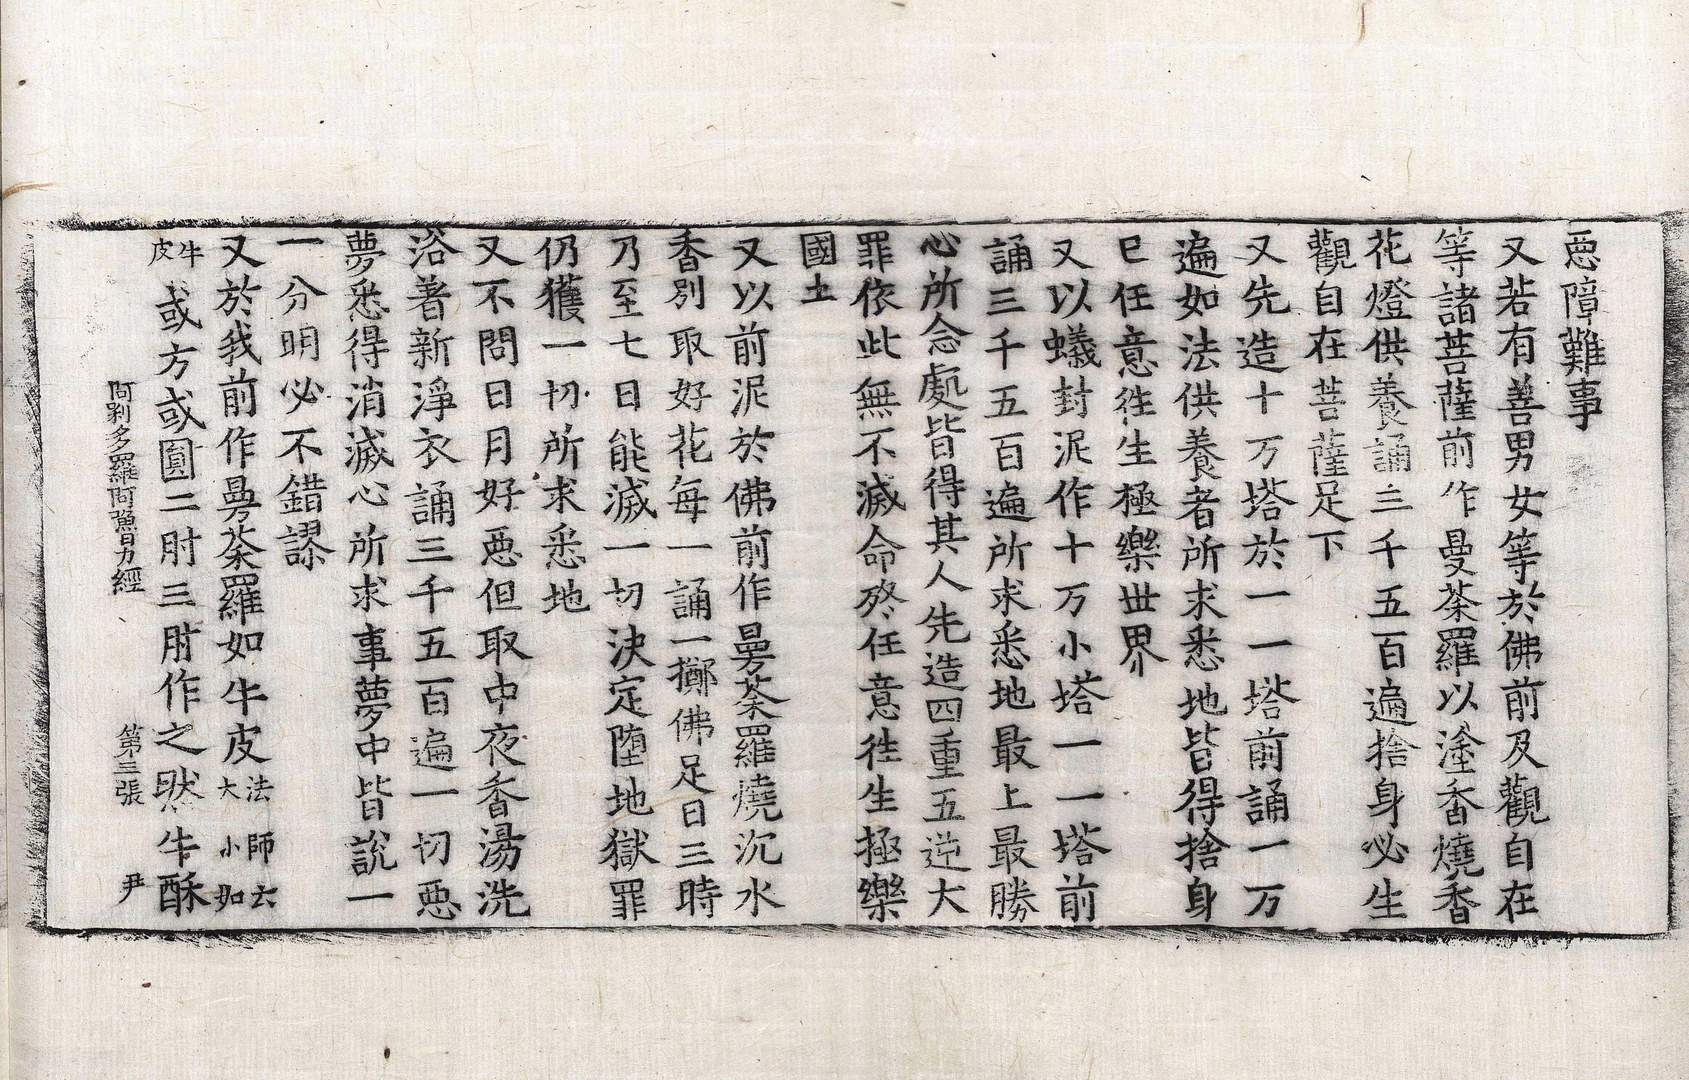 惡障難事
又若有善男女等於佛前及觀自在
等諸菩薩前作曼荼羅以塗香燒香
花燈供養誦三千五百遍捨身必生
觀自在菩薩足下
又先造十万塔於一一塔前誦一万
遍如法供養者所求悉地皆得捨身
已任意往生極樂世界
又以蟻封泥作十万小塔一一塔前
誦三千五百遍所求悉地最上最勝
心所念處皆得其人先造四重五逆大
罪依此無不滅命終任意往生極樂
國土
又以前泥於佛前作曼荼羅燒沉水
香別取好花每一誦一擲佛足日三時
乃至七日能滅一切決定墮地獄罪
仍獲一切所求悉地
又不問日月好惡但取中夜香湯洗
浴著新淨衣誦三千五百遍一切惡
夢悉得消滅心所求事夢中皆說一
一分明必不錯謬
又於我前作曼荼羅如牛皮法師云大小如
牛皮或方或圓二肘三肘作之然牛酥
阿唎多羅阿嚕力經 第三張 尹